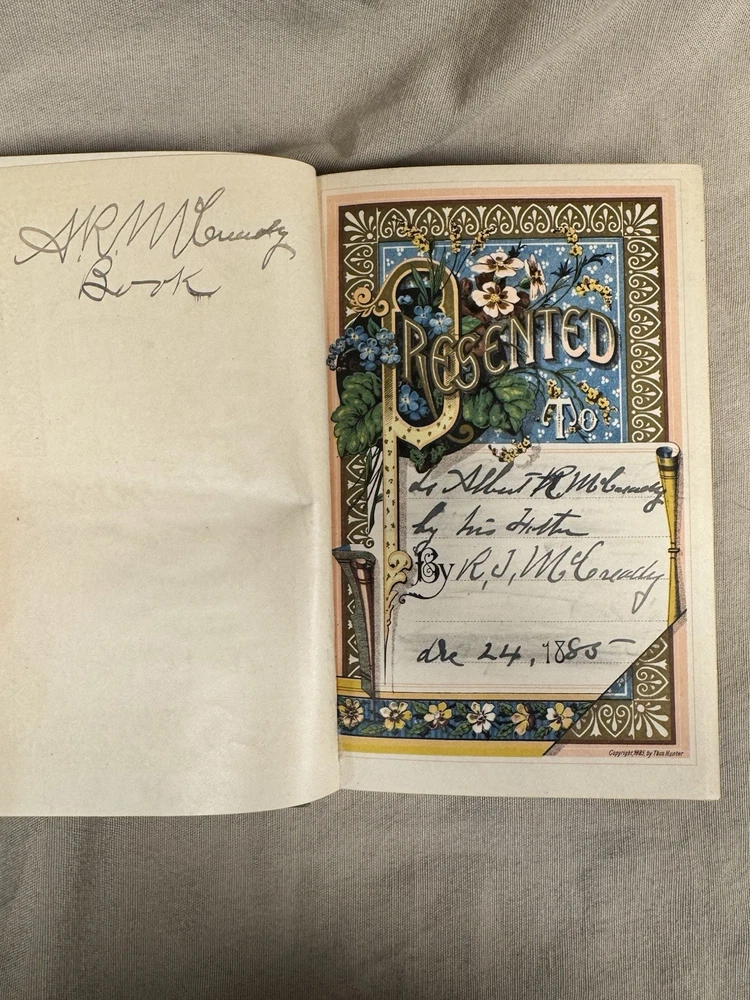 A.R. McCready
Book
PRESENTED
To
to Albert R McCready
by his
By R. J. McCready
dec 24, 1885
Copyright, 1883, by Thos Hunter